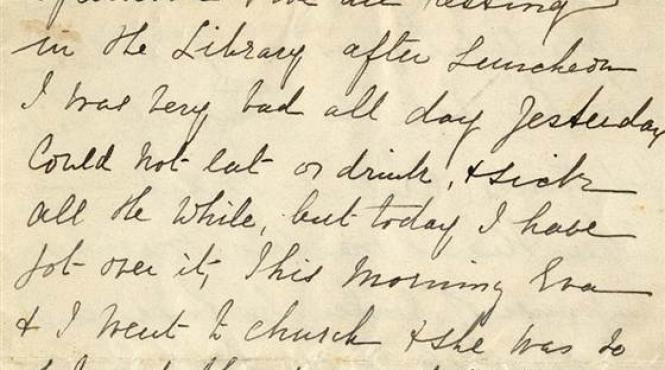 & we are resting
in the Library after Luncheon
I was very bad all day Yesterday
Could not eat or drink, & sick
all the While, but today, I have
got over it, This Morning Eva
& I went to church & she was so